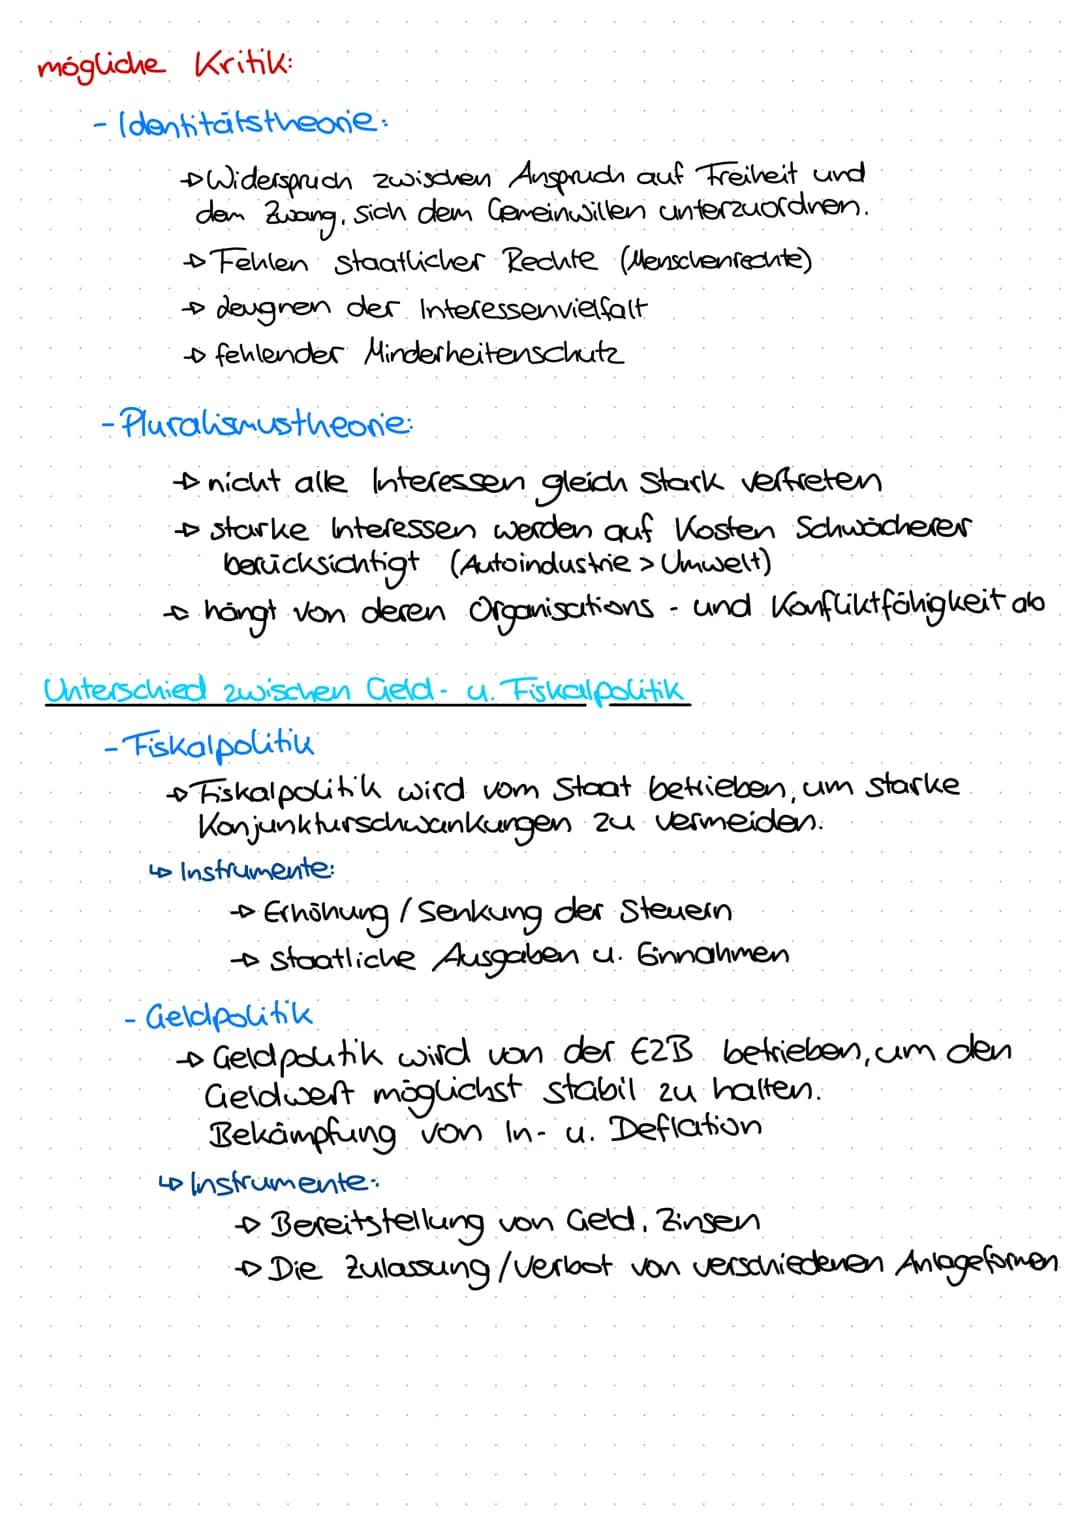 mögliche Kritik:
- Identitätstheorie:
→ Widerspruch zwischen Anspruch auf Freiheit und
dem Zwang, sich dem Gemeinwillen unterzuordnen.
→ Fehlen staatlicher Rechte (Menschenrechte)
→ Leugnen der Interessenvielfalt
→ fehlender Minderheitenschutz
- Pluralismustheorie:
→ nicht alle Interessen gleich stark vertreten
→ starke Interessen werden auf Kosten Schwächerer
berücksichtigt (Autoindustrie > Umwelt)
→ hängt von deren Organisations- und Konfliktfähigkeit ab
Unterschied zwischen Geld- u. Fiskalpolitik
- Fiskalpolitik
→ Fiskalpolitik wird vom Staat betrieben, um starke
Konjunkturschwankungen zu vermeiden.
↳ Instrumente:
→ Erhöhung / Senkung der Steuern
→ staatliche Ausgaben u. Einnahmen
- Geldpolitik
→ Geldpolitik wird von der EZB betrieben, um den
Geldwert möglichst stabil zu halten.
Bekämpfung von In- u. Deflation
↳ Instrumente:
→ Bereitstellung von Geld, Zinsen
→ Die Zulassung/Verbot von verschiedenen Anlageformen